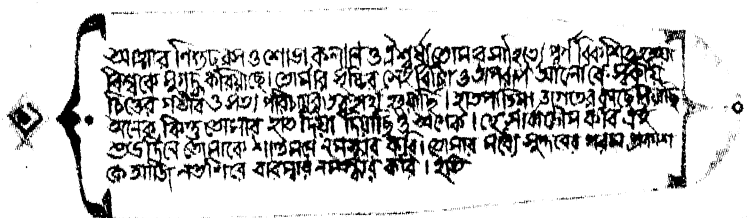 আত্মার নিগূঢ় রস ও শোভা কল্যাণ ও ঐশ্বর্য্য তোমার সাহিত্যে পূর্ণ বিকশিত হইয়া
বিশ্বকে মুগ্ধ করিয়াছে। তোমার সৃষ্টির সেই বিচিত্র ও অপরূপ আলোকে স্বকীয়
চিত্তের গভীর ও সত্য পরিচয়ে কৃতকৃতার্থ হইয়াছি। হাত পাতিয়া জগতের কাছে নিয়াছি
অনেক কিন্তু তোমার হাত দিয়া দিয়াছিও অনেক। হে সার্বভৌম কবি এই
শুভদিনে তোমাকে শান্তমনে নমস্কার করি। তোমার মধ্যে সুন্দরের পরম প্রকাশ
কে আজি নতশিরে বারম্বার নমস্কার করি। ইতি